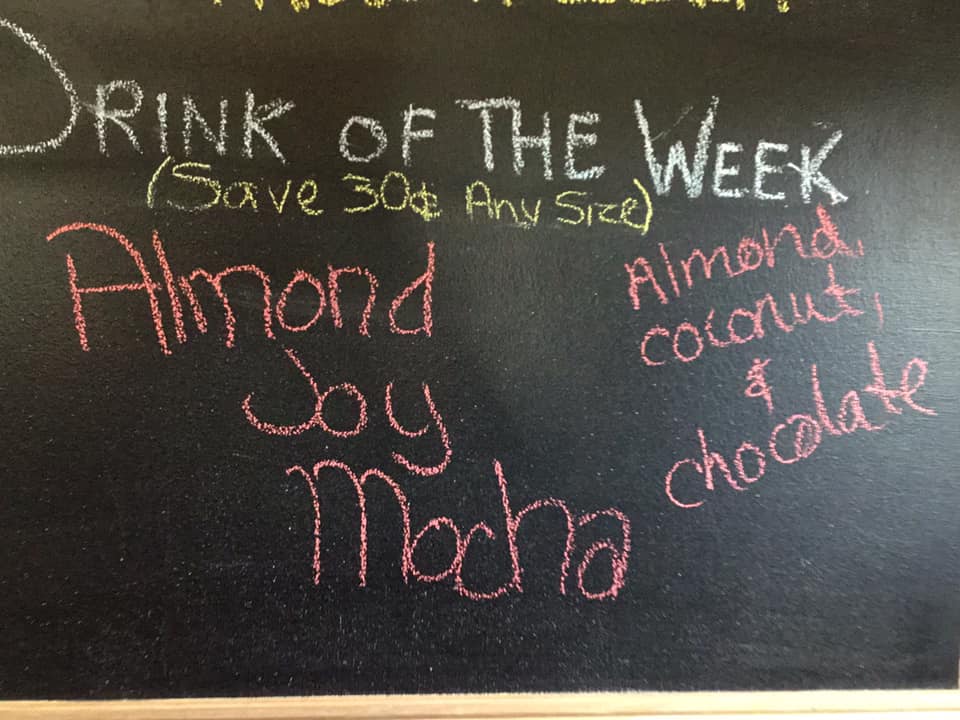 DRINK OF THE WEEK
(Save 30¢ Any Size)
Almond
Joy
Mocha
Almond,
coconut,
&
chocolate